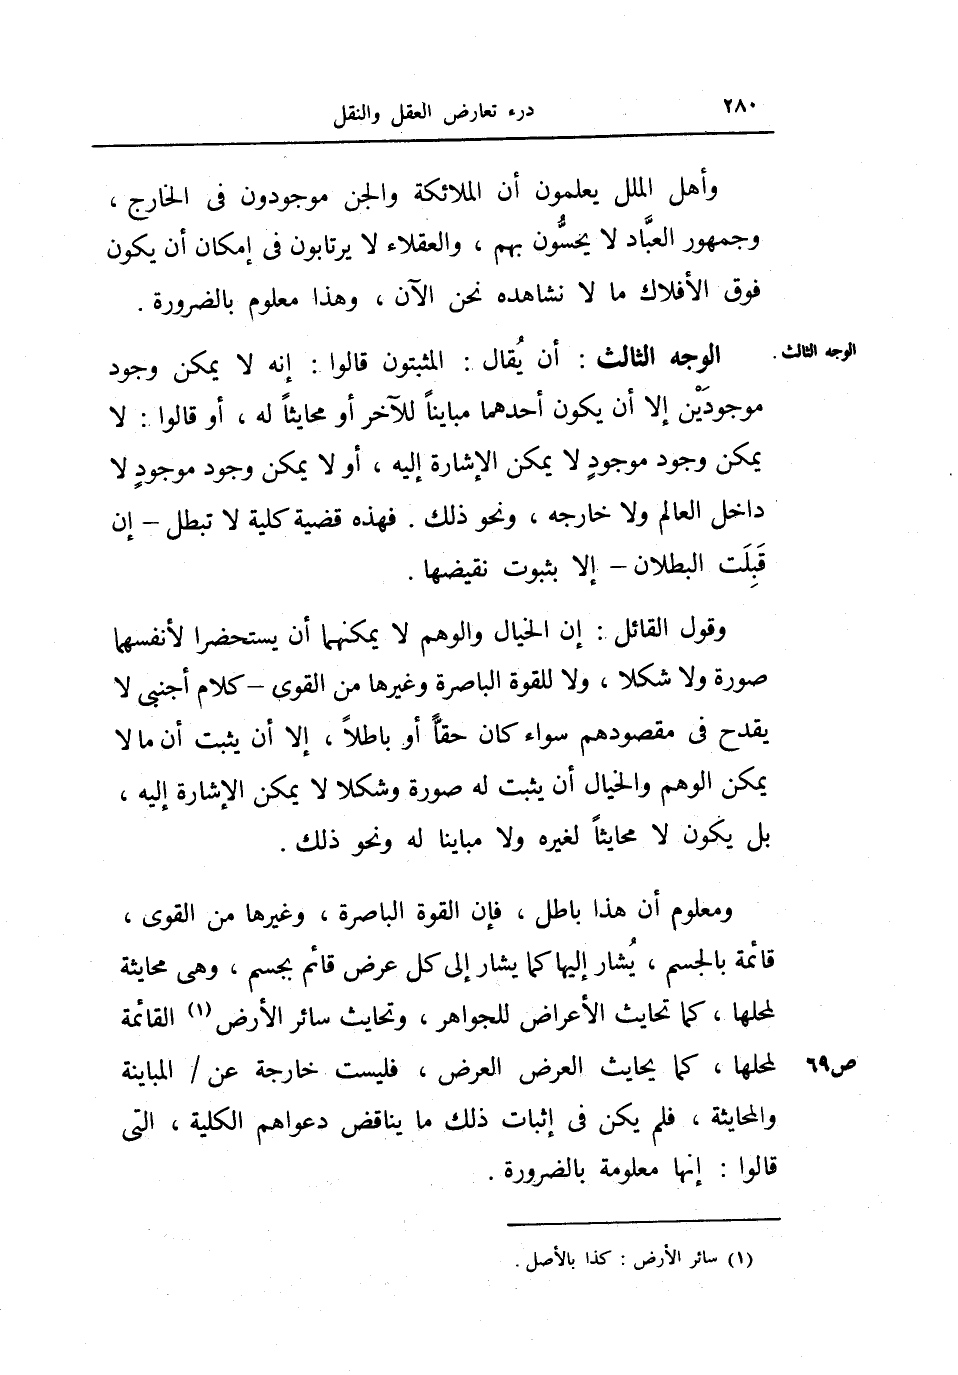 ٢٨٠
درء تعارض العقل والنقل
وأهل الملل يعلمون أن الملائكة والجن موجودون فى الخارج ،
وجمهور العبَّاد لا يحسُّون بهم ، والعقلاء لا يرتابون فى إمكان أن يكون
فوق الأفلاك ما لا نشاهده نحن الآن ، وهذا معلوم بالضرورة .
الوجه الثالث .
الوجه الثالث : أن يُقال : المثبتون قالوا : إنه لا يمكن وجود
موجودَيْن إلا أن يكون أحدهما مبايناً للآخر أو محايثاً له ، أو قالوا : لا
يمكن وجود موجودٍ لا يمكن الإشارة إليه ، أو لا يمكن وجود موجودٍ لا
داخل العالم ولا خارجه ، ونحو ذلك . فهذه قضية كلية لا تبطل – إن
قَبِلَت البطلان – إلا بثبوت نقيضها .
وقول القائل : إن الخيال والوهم لا يمكنهما أن يستحضرا لأنفسهما
صورة ولا شكلا ، ولا للقوة الباصرة وغيرها من القوى – كلام أجنبى لا
يقدح فى مقصودهم سواء كان حقاًّ أو باطلاً ، إلا أن يثبت أن ما لا
يمكن الوهم والخيال أن يثبت له صورة وشكلا لا يمكن الإشارة إليه ،
بل يكون لا محايثاً لغيره ولا مباينا له ونحو ذلك .
ومعلوم أن هذا باطل ، فإن القوة الباصرة ، وغيرها من القوى ،
قائمة بالجسم ، يُشار إليها كما يشار إلى كل عرض قائم بجسم ، وهى محايثة
لمحلها ، كما تحايث الأعراض للجواهر ، وتحايث سائر الأرض (١) القائمة
لمحلها ، كما يحايث العرض العرض ، فليست خارجة عن / المباينة
ص٦٩
والمحايثة ، فلم يكن فى إثبات ذلك ما يناقض دعواهم الكلية ، التى
قالوا : إنها معلومة بالضرورة .
(١) سائر الأرض : كذا بالأصل .